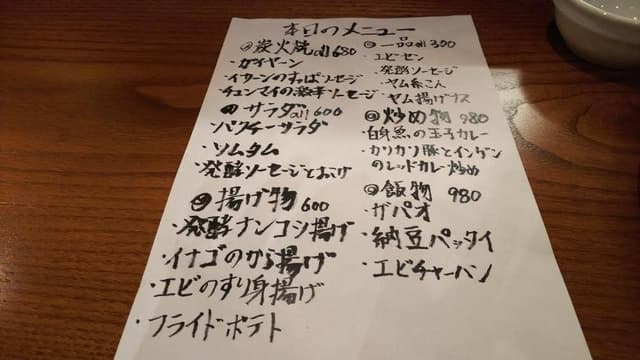 本日のメニュー
炭火焼all680
・ガイヤーン
・イサーンのすっぱソーセージ
・チェンマイの激辛ソーセージ
サラダall600
・パクチーサラダ
・ソムタム
・発酵ソーセージとおこげ
揚げ物600
・発酵ナンコツ揚げ
・イナゴのから揚げ
・エビのすり身揚げ
・フライドポテト
一品all300
・エビセン
・発酵ソーセージ
・ヤム糸こん
・ヤム揚げナス
炒め物 980
・白身魚の玉子カレー
・カリカリ豚とインゲン
のレッドカレー炒め
飯物 980
・ガパオ
・納豆パッタイ
・エビチャーハン